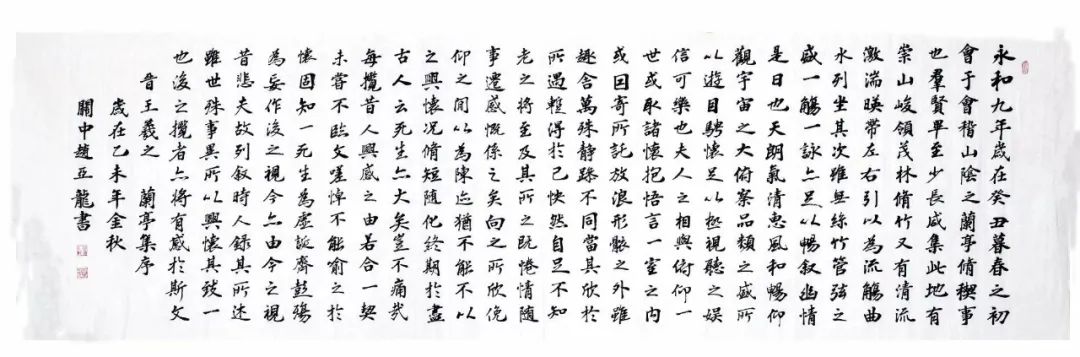 永和九年歲在癸丑暮春之初
會于會稽山陰之蘭亭脩稧事
也羣賢畢至少長咸集此地有
崇山峻領茂林脩竹又有清流
激湍暎帶左右引以為流觴曲
水列坐其次雖無絲竹管弦之
盛一觴一詠亦足以暢敘幽情
是日也天朗氣清惠風和暢仰
觀宇宙之大俯察品類之盛所
以遊目騁懷足以極視聽之娛
信可樂也夫人之相與俯仰一
世或取諸懷抱悟言一室之內
或因寄所託放浪形骸之外雖
趣舍萬殊靜躁不同當其欣於
所遇暫得於己快然自足不知
老之將至及其所之既惓情隨
事遷感慨係之矣向之所欣俛
仰之間以為陳迹猶不能不以
之興懷況脩短隨化終期於盡
古人云死生亦大矣豈不痛哉
每攬昔人興感之由若合一契
未嘗不臨文嗟悼不能喻之於
懷固知一死生為虛誕齊彭殤
為妄作後之視今亦由今之視
昔悲夫故列敘時人錄其所述
雖世殊事異所以興懷其致一
也後之攬者亦將有感於斯文
晉王羲之 蘭亭集序
歲在乙未年金秋
關中趙亞龍書